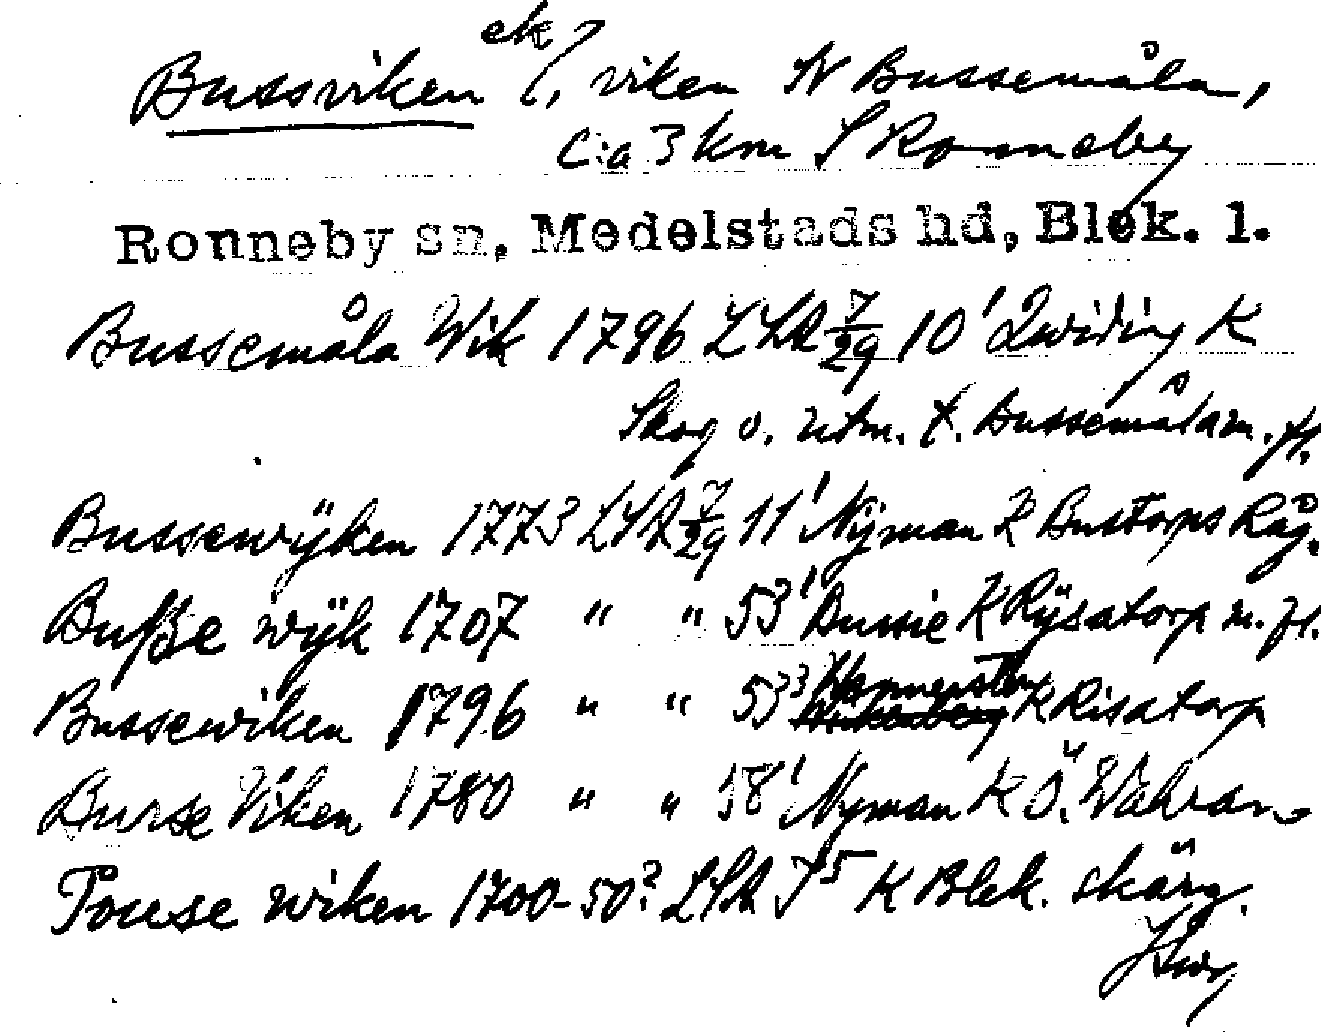 Bussviken ek, viken N Bussemåla,
c:a 3 km S Ronneby
Ronneby sn, Medelstads hd, Blek. l.
Bussemåla Wik 1796 LSA 7/29 10¹ Qwiding K
Skog o. utm. t. Bussemåla m. fl.
Bussewÿken 1773 LSA 7/29 11¹ Nÿman K Bustorps Råg.
Bußze wÿk 1707 " " 53¹ K Rÿsatorp m. fl.
Bussewiken 1796 " " 53³ K Risatorp
Burse Viken 1780 " " 58¹ Nyman K Ö.
Pouse wiken 1700-50? LSA J5 K Blek. skärg.